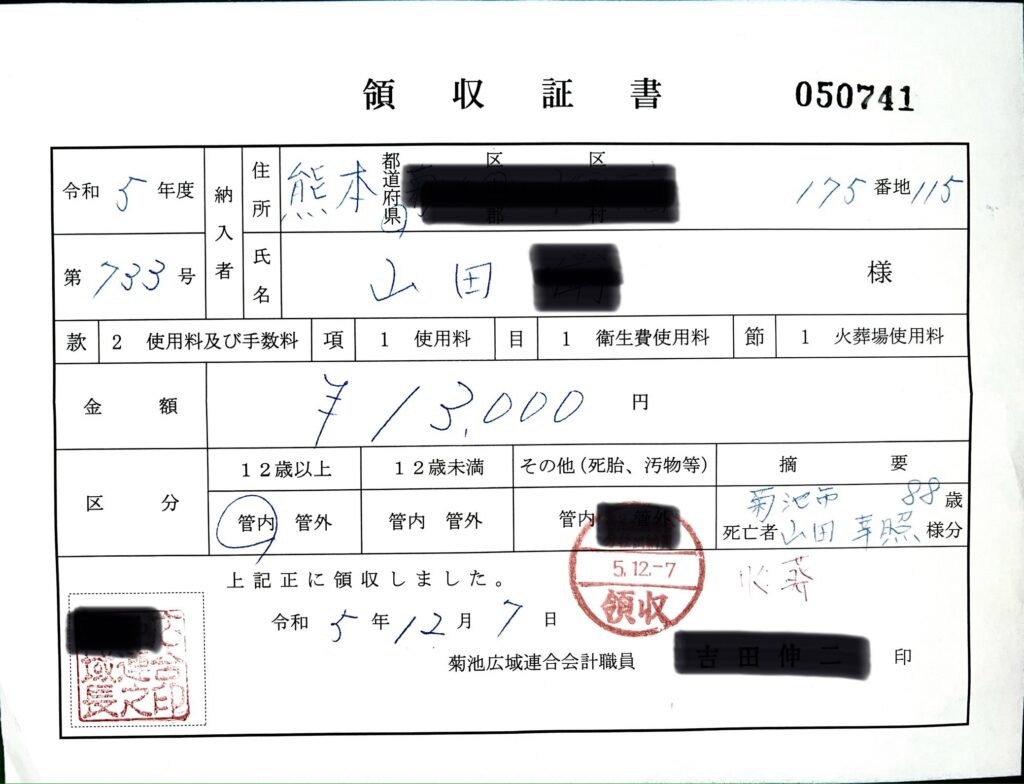 領収証書 050741
令和5年度 納入者 住所 熊本 都道府県 区 郡 区 村 175番地115
第733号 氏名 山田 様
款 2 使用料及び手数料 項 1 使用料 目 1 衛生費使用料 節 1 火葬場使用料
金額 ¥13,000円
区分 12歳以上 12歳未満 その他(死胎、汚物等) 摘要
管内 管外 管内 管外 管内 菊池市 88歳
死亡者 山田 幸照 様分
上記正に領収しました。 5.12.-7 火葬
令和5年12月7日 領収
菊池広域連合会計職員 印
域連合
長之印